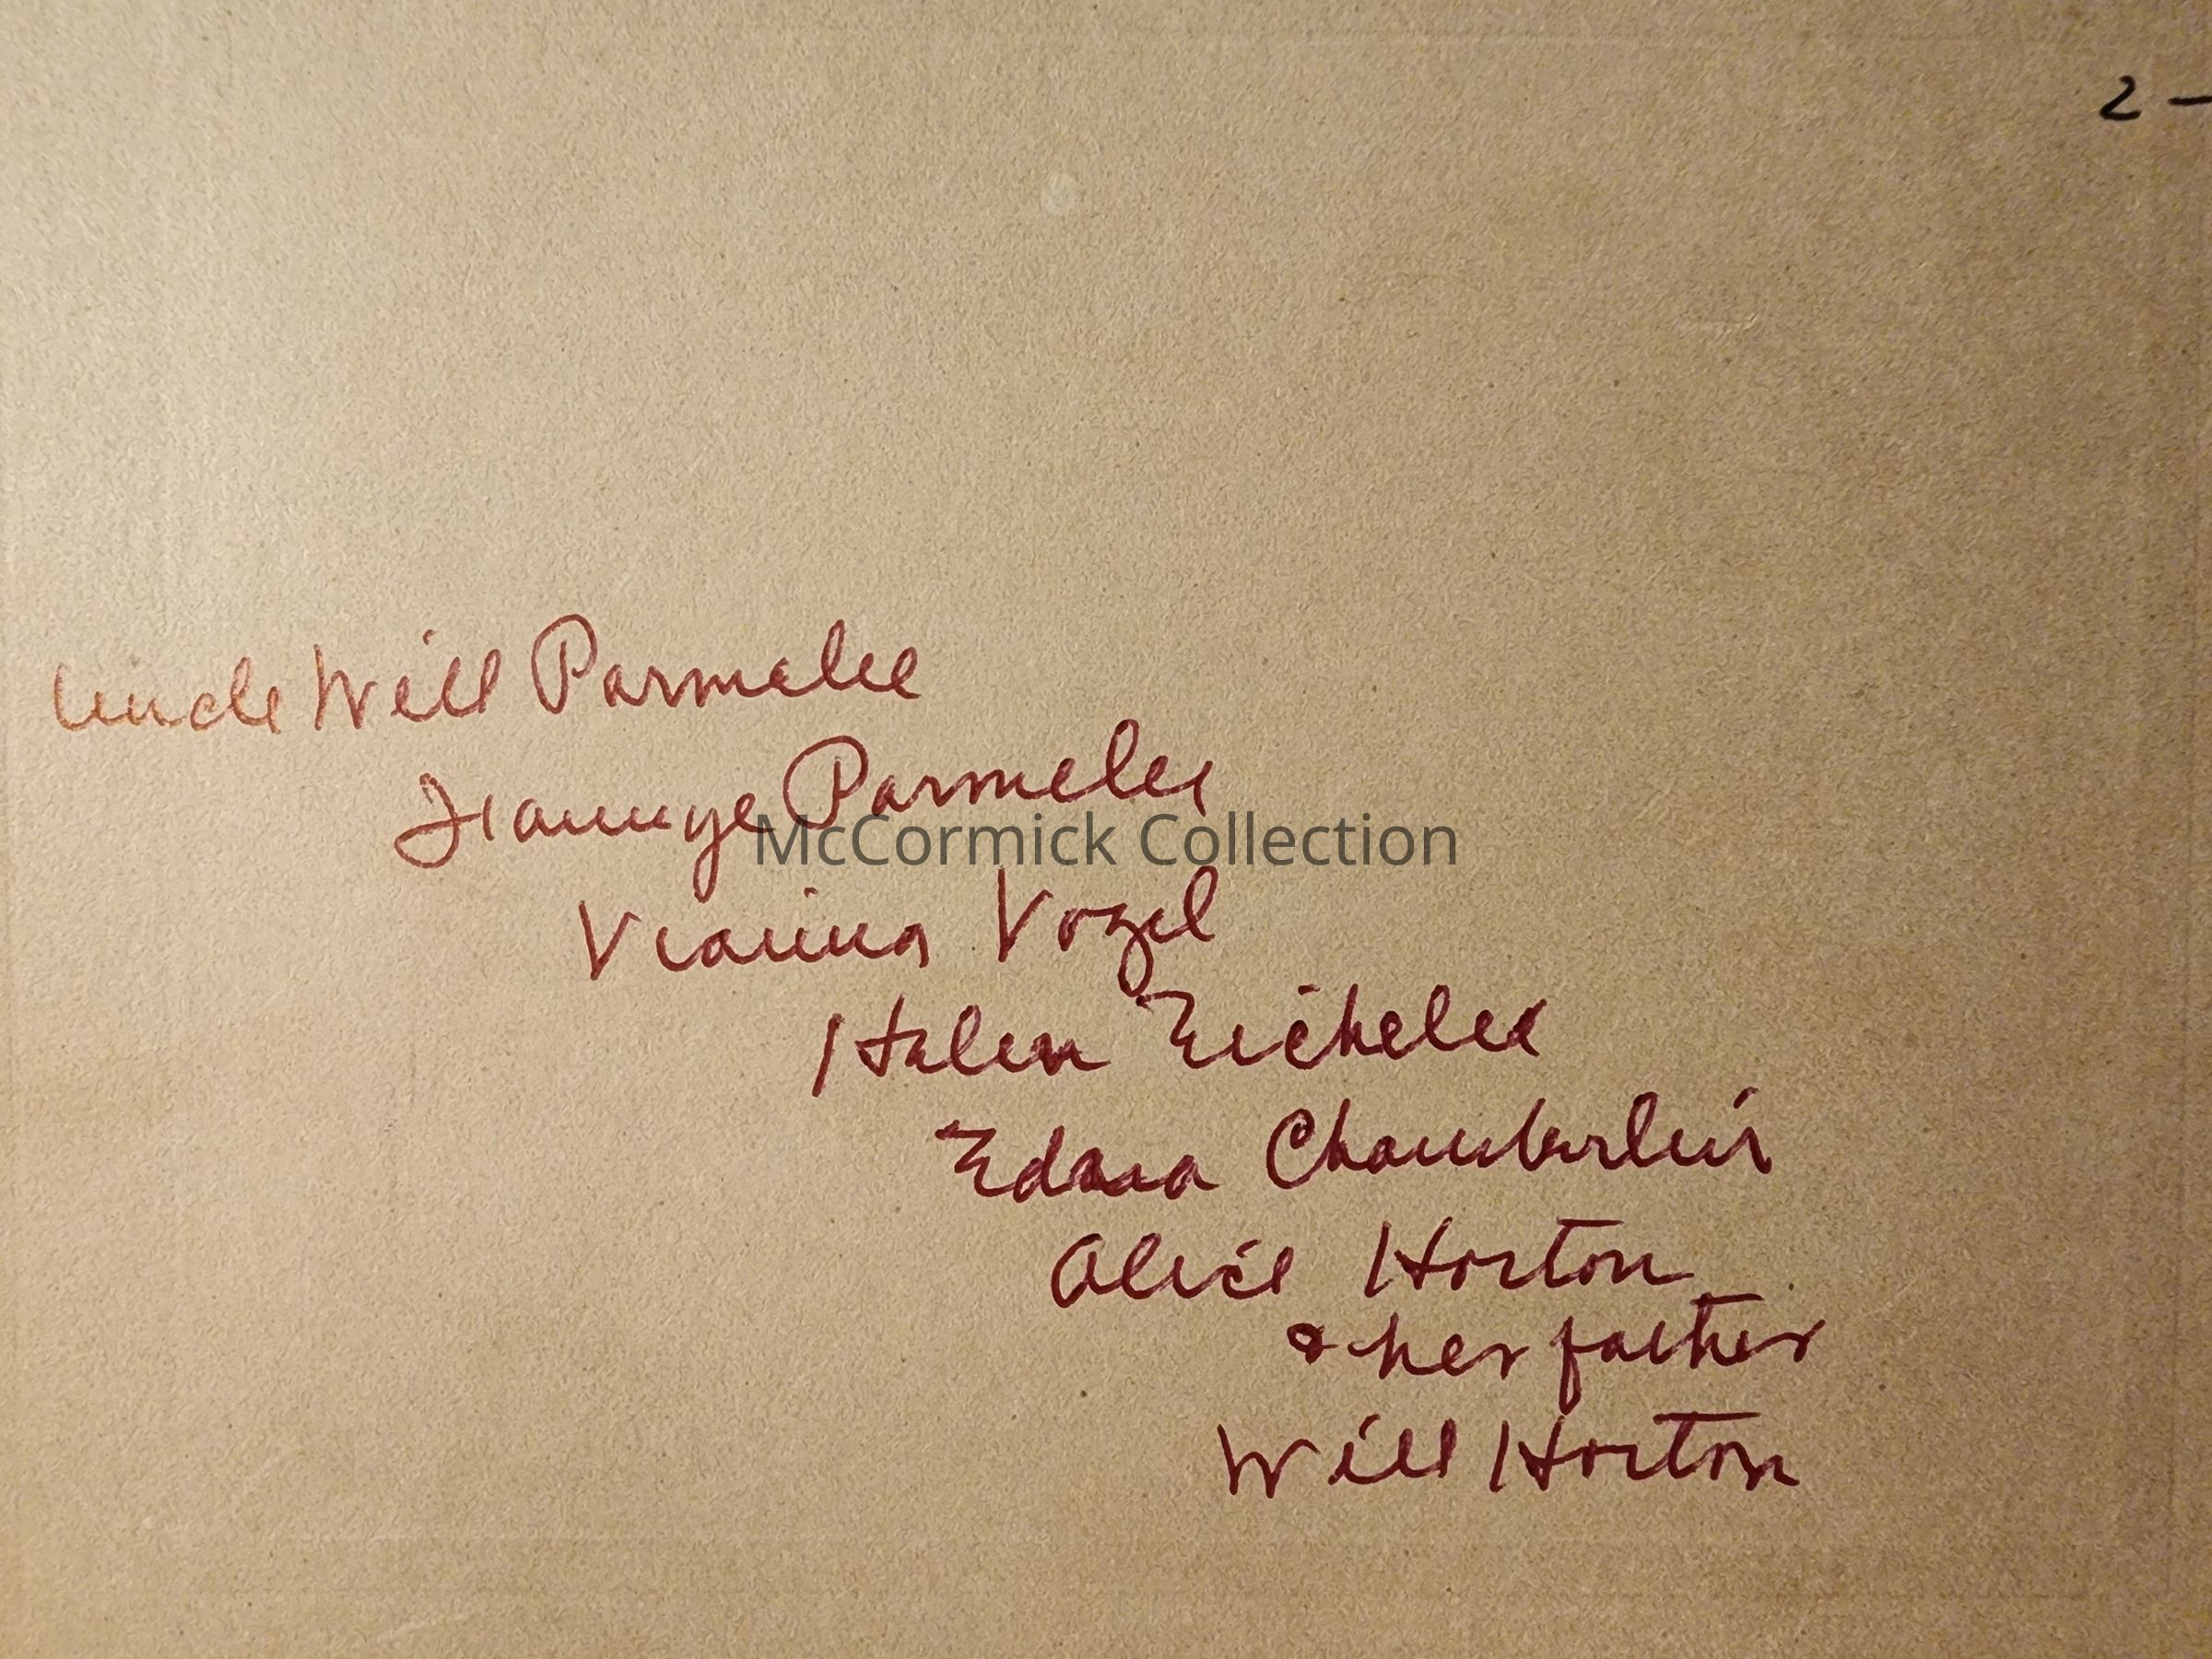 2 -
Uncle Will Parmelee
Parmelee
McCormick Collection
Vogel
Helen
Edna Chamberlin
Alice Horton
& her father
Will Horton